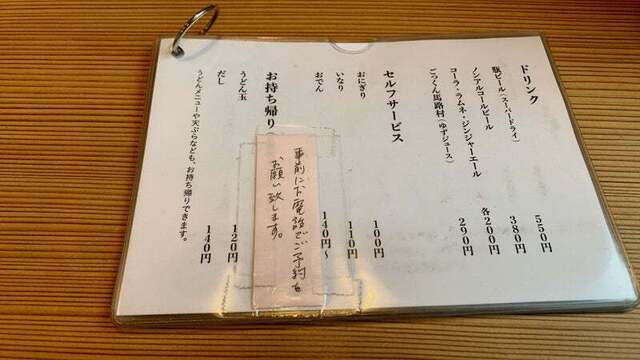 ドリンク
瓶ビール(スーパードライ) 550円
ノンアルコールビール 380円
コーラ・ラムネ・ジンジャーエール 各200円
ごっくん馬路村(ゆずジュース) 290円
セルフサービス
おにぎり 100円
いなり 110円
おでん 140円〜
お持ち帰り
うどん玉 120円
だし 140円
うどんメニューや天ぷらなども、お持ち帰りできます。
事前にお電話でご予約を
お願い致します。